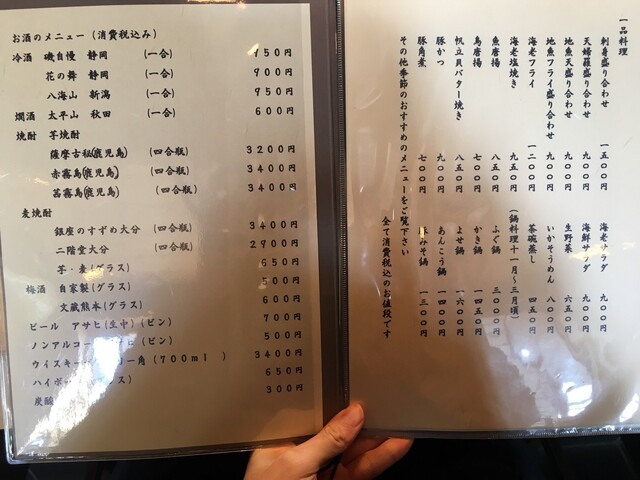 お酒のメニュー (消費税込み)
冷酒 磯自慢 静岡 (一合) 950円
花の舞 静岡 (一合) 900円
八海山 新潟 (一合) 950円
燗酒 太平山 秋田 (一合) 600円
焼酎 芋焼酎
薩摩古秘(鹿児島) (四合瓶) 3200円
赤霧島(鹿児島) (四合瓶) 3400円
茜霧島(鹿児島) (四合瓶) 3400円
麦焼酎
銀座のすずめ大分 (四合瓶) 3400円
二階堂大分 (四合瓶) 2900円
芋・麦(グラス) 650円
梅酒 自家製(グラス) 500円
文蔵熊本(グラス) 600円
ビール アサヒ(生中)(ビン) 700円
ノンアルコー (ビン) 500円
ウイスキー 角(700ml ) 3400円
ハイボ ス) 650円
炭酸 300円
一品料理
刺身盛り合わせ 一五〇〇円
天婦羅盛り合わせ 九〇〇円
地魚天盛り合わせ 九〇〇円
地魚フライ盛り合わせ 九〇〇円
海老フライ 一二〇〇円
海老塩焼き 九五〇円
魚唐揚 八五〇円
鳥唐揚 七〇〇円
帆立貝バター焼き 八五〇円
豚かつ 九〇〇円
豚角煮 七〇〇円
その他季節のおすすめのメニューをご覧下さい
海老サラダ 九〇〇円
海鮮サラダ 九〇〇円
生野菜 六五〇円
いかそうめん 八〇〇円
茶碗蒸し 四五〇円
(鍋料理十一月〜三月頃)
ふぐ鍋 三〇〇〇円
かき鍋 一四五〇円
よせ鍋 一六〇〇円
あんこう鍋 一四〇〇円
みそ鍋 一三〇〇円
全て消費税込のお値段です